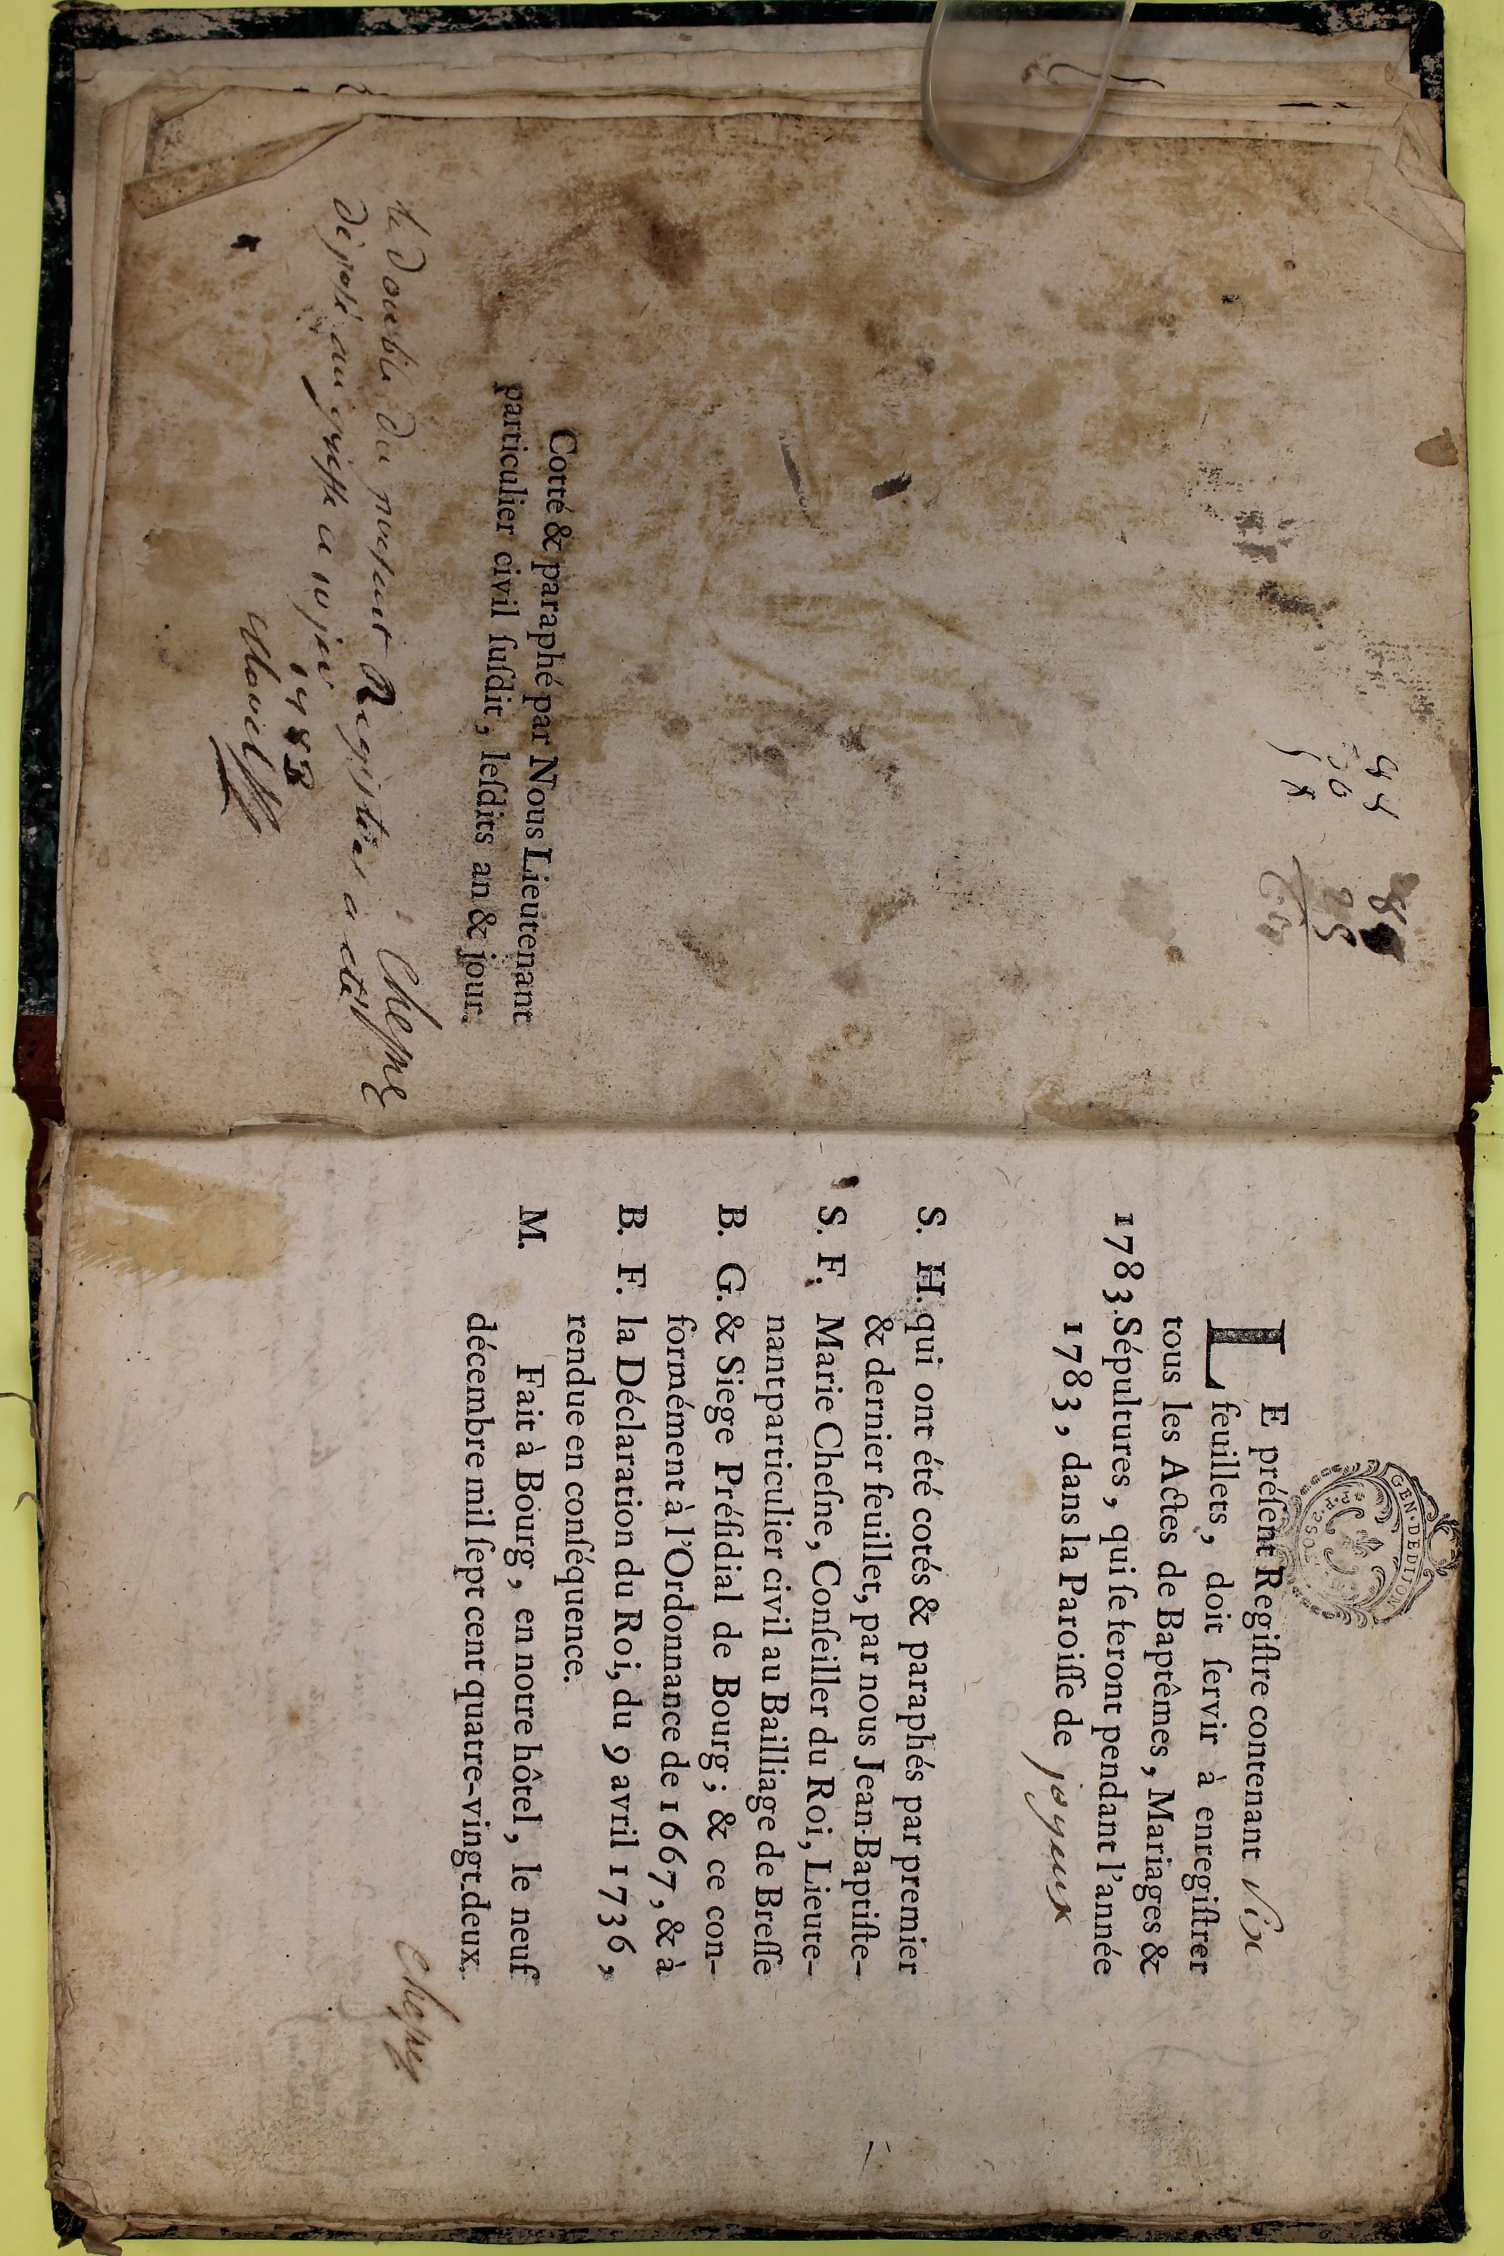 88
30
Cotté & paraphé par Nous Lieutenant
particulier civil ſuſdit, leſdits an & jour.
Cheſne
le double du present Registre a eté
déposé au greffe ce 10 jer
1783
GEN·DEDIJON
LE préſent Regiſtre contenant six
feuillets, doit ſervir à enregiſtrer
tous les Actes de Baptêmes, Mariages &
1783. Sépultures, qui ſe feront pendant l'année
1783, dans la Paroiſſe de joyeux
S. H. qui ont été cotés & paraphés par premier
& dernier feuillet, par nous Jean-Baptiſte-
S. F. Marie Cheſne, Conſeiller du Roi, Lieute-
nant particulier civil au Bailliage de Breſſe
B. G. & Siege Préſidial de Bourg; & ce con-
formément à l'Ordonnance de 1667, & à
B. F. la Déclaration du Roi, du 9 avril 1736,
rendue en conſéquence.
M. Fait à Bourg, en notre hôtel, le neuf
décembre mil ſept cent quatre-vingt-deux.
Cheſne